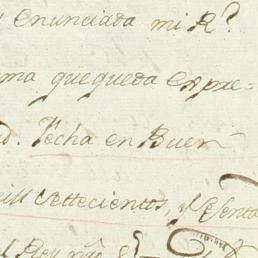 enunciada mi R.l
ma que queda expre=
Fecha en Buen
mill settecientos, y sesenta
el Rey nro